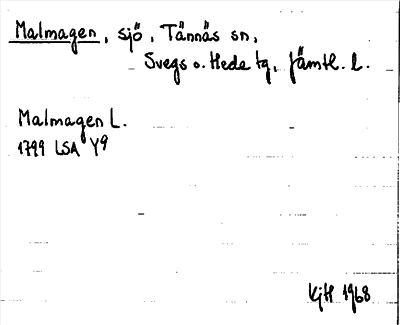 Malmagen, sjö, Tännäs sn,
Svegs o. Hede tg, Jämtl. l.
Malmagen L.
1799 LSA Y9
KjH 1968